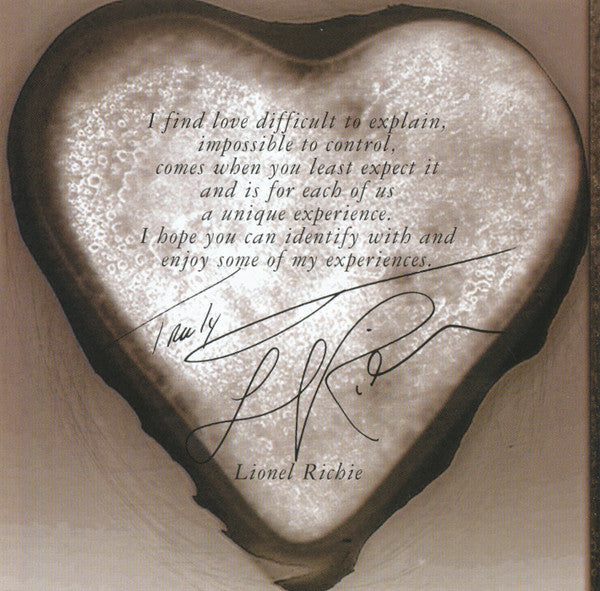 I find love difficult to explain,
impossible to control,
comes when you least expect it
and is for each of us
a unique experience.
I hope you can identify with and
enjoy some of my experiences.
Truly
Lionel Richie